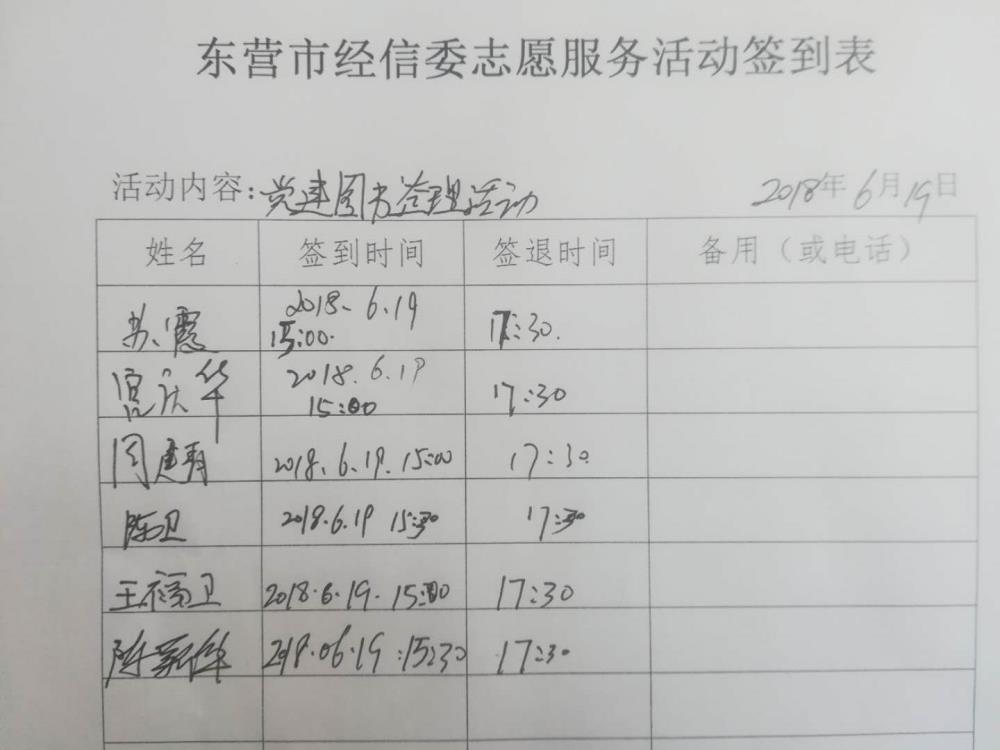 东营市经信委志愿服务活动签到表
活动内容:党建图书管理活动 2018年6月19日
姓名 签到时间 签退时间 备用（或电话）
苏霞 2018.6.19 15:00. 17:30.
宫庆华 2018.6.19 15:00 17:30
周建 2018.6.19.15:00 17:30
陈卫 2018.6.19 15:30 17:30
王福卫 2018.6.19.15:00 17:30
陈华 2018.06.19:15:30 17:30